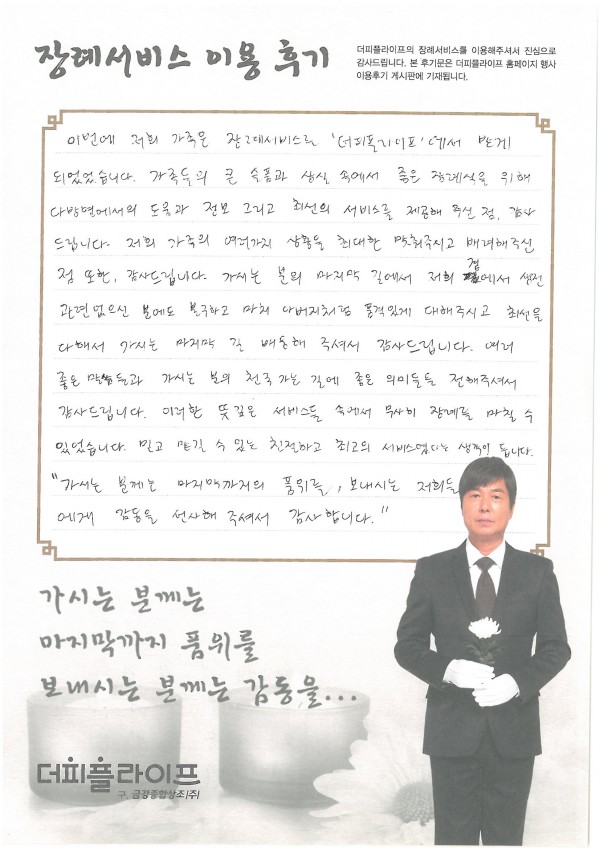 장례서비스 이용 후기
더피플라이프의 장례서비스를 이용해주셔서 진심으로
감사드립니다. 본 후기문은 더피플라이프 홈페이지 행사
이용후기 게시판에 기재됩니다.
이번에 저희 가족은 장례서비스를 '더피플라이프'에서 받게
되었었습니다. 가족들의 큰 슬픔과 상실 속에서 좋은 장례식을 위해
다방면에서의 도움과 정보 그리고 최선의 서비스를 제공해 주신 점, 감사
드립니다. 저희 가족의 여러가지 상황을 최대한 맞춰주시고 배려해주신
점 또한, 감사드립니다. 가시는 분의 마지막 길에서 저희 곁에서 생전
관련없으신 분에도 불구하고 마치 아버지처럼 품격있게 대해주시고 최선을
다해서 가시는 마지막 길 배웅해 주셔서 감사드립니다. 여러
좋은 말씀들과 가시는 분의 천국 가는 길에 좋은 의미들을 전해주셔서
감사드립니다. 이러한 뜻깊은 서비스들 속에서 무사히 장례를 마칠 수
있었습니다. 믿고 맡길 수 있는 친절하고 최고의 서비스였다는 생각이 듭니다.
"가시는 분께는 마지막까지의 품위를, 보내시는 저희들
에게 감동을 선사해 주셔서 감사합니다."
가시는 분께는
마지막까지 품위를
보내시는 분께는 감동을...
더피플라이프
구. 금강종합상조(주)